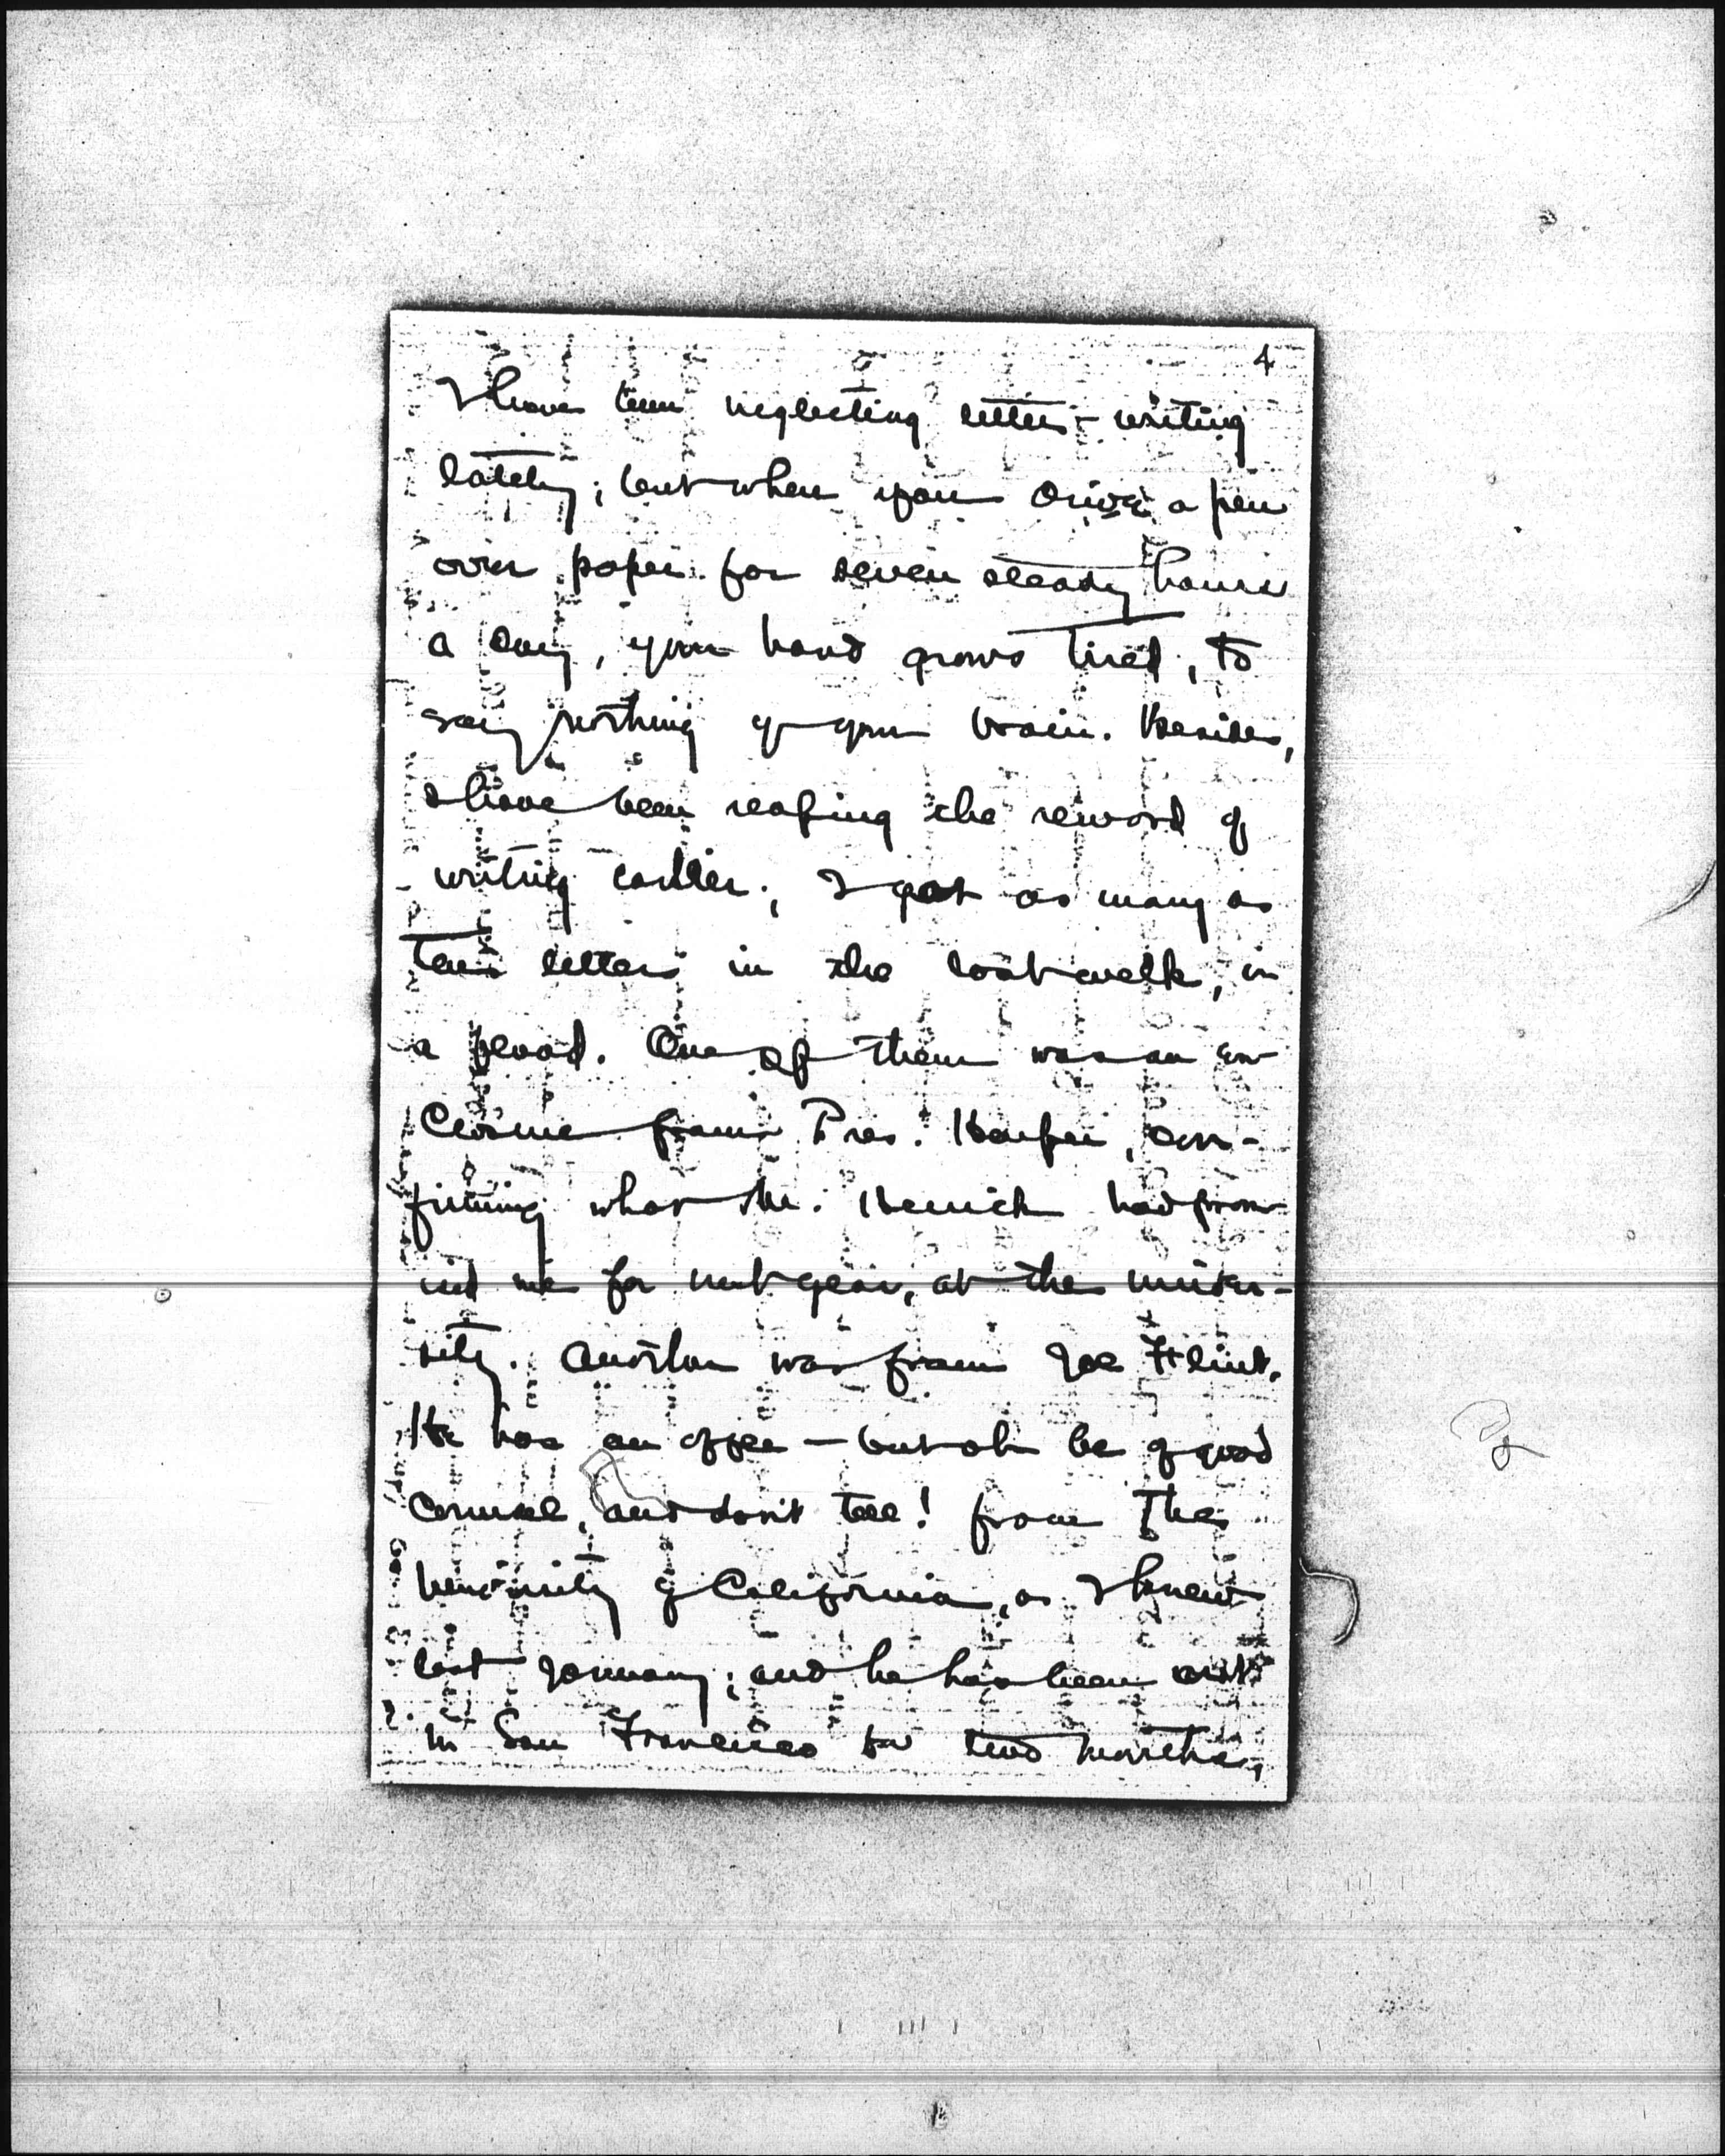 4
I have been neglecting letter-writing
lately; but when you drive a pen
over paper for seven steady hours
a day, your hand grows tired, to
say nothing of your brain. Besides,
I have been reaping the reward of
writing earlier; I got as many as
ten letters in the last week, in
a flood. One of them was an en-
closure from Pres. Harper, con-
firming what Mr. Herrick had prom-
ised me for next year, at the univer-
sity. Another was from Joe Flint.
He has an offer — but oh be of good
counsel, and don't tell! from the
University of California, as I knew
last January; and he has been out
in San Francisco for two months,